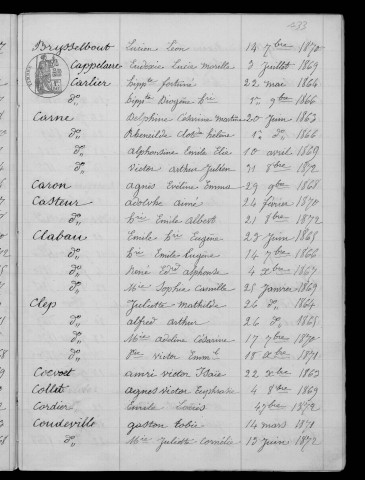 433
Brysselbout Lucien Léon 14 7bre 1870
Cappelaere Lucie Marelle 3 Juillet 1869
Carlier hippte fortuné 22 mai 1864
do hippte Diogène 1er 9bre 1866
Carne Delphine Césarine 20 Juin 1863
do hélène do 1866
do alphonsine Emile 10 avril 1869
do Victor arthur Julien 31 8bre 1872
Caron agnès Eveline Emma 29 9bre 1868
Casteur adolphe aimé 24 février 1870
do Emile Albert 21 8bre 1872
Clabau Emile Eugène 23 Juin 1865
do Emile Eugène 14 7bre 1866
do René alphonse 4 Xbre 1867
do Mie Sophie Camille 25 Janvier 1869
Clep Juliette Mathilde 26 do 1864
do alfred arthur 26 do 1865
do Mie adeline Césarine 17 7bre 1870
do Victor Emml 18 Xbre 1871
Coevoet amri victor 22 Xbre 1863
Collet agnès victor 4 8bre 1869
Cordier Emile 4 7bre 1872
Coudeville gaston tobie 14 mars 1871
do Mie Juliette Cornélie 13 Juin 1872